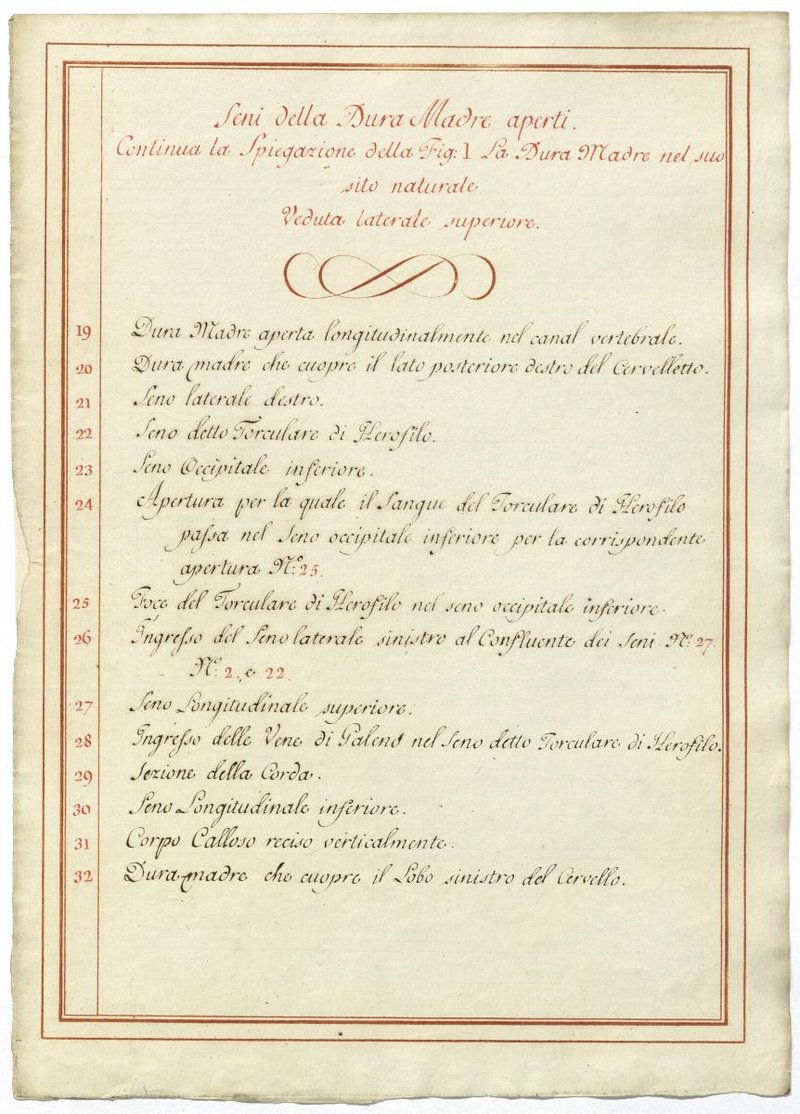 Seni della Dura Madre aperti.
Continua la Spiegazione della Fig: 1 La Dura Madre nel suo
sito naturale
Veduta laterale superiore.
19 Dura Madre aperta longitudinalmente nel canal vertebrale.
20 Dura madre che cuopre il lato posteriore destro del Cervelletto.
21 Seno laterale destro.
22 Seno detto Torculare di Herofilo.
23 Seno Occipitale inferiore.
24 Apertura per la quale il Sangue del Torculare di Herofilo
passa nel Seno occipitale inferiore per la corrispondente
apertura N.º 25.
25 Foce del Torculare di Herofilo nel seno occipitale inferiore.
26 Ingresso del Seno laterale sinistro al Confluente dei Seni N.º 27.
N.º 2., e 22.
27 Seno Longitudinale superiore.
28 Ingresso delle Vene di Galeno nel Seno detto Torculare di Herofilo.
29 Sezione della Corda.
30 Seno Longitudinale inferiore.
31 Corpo Calloso reciso verticalmente.
32 Dura madre che cuopre il Lobo sinistro del Cervello.